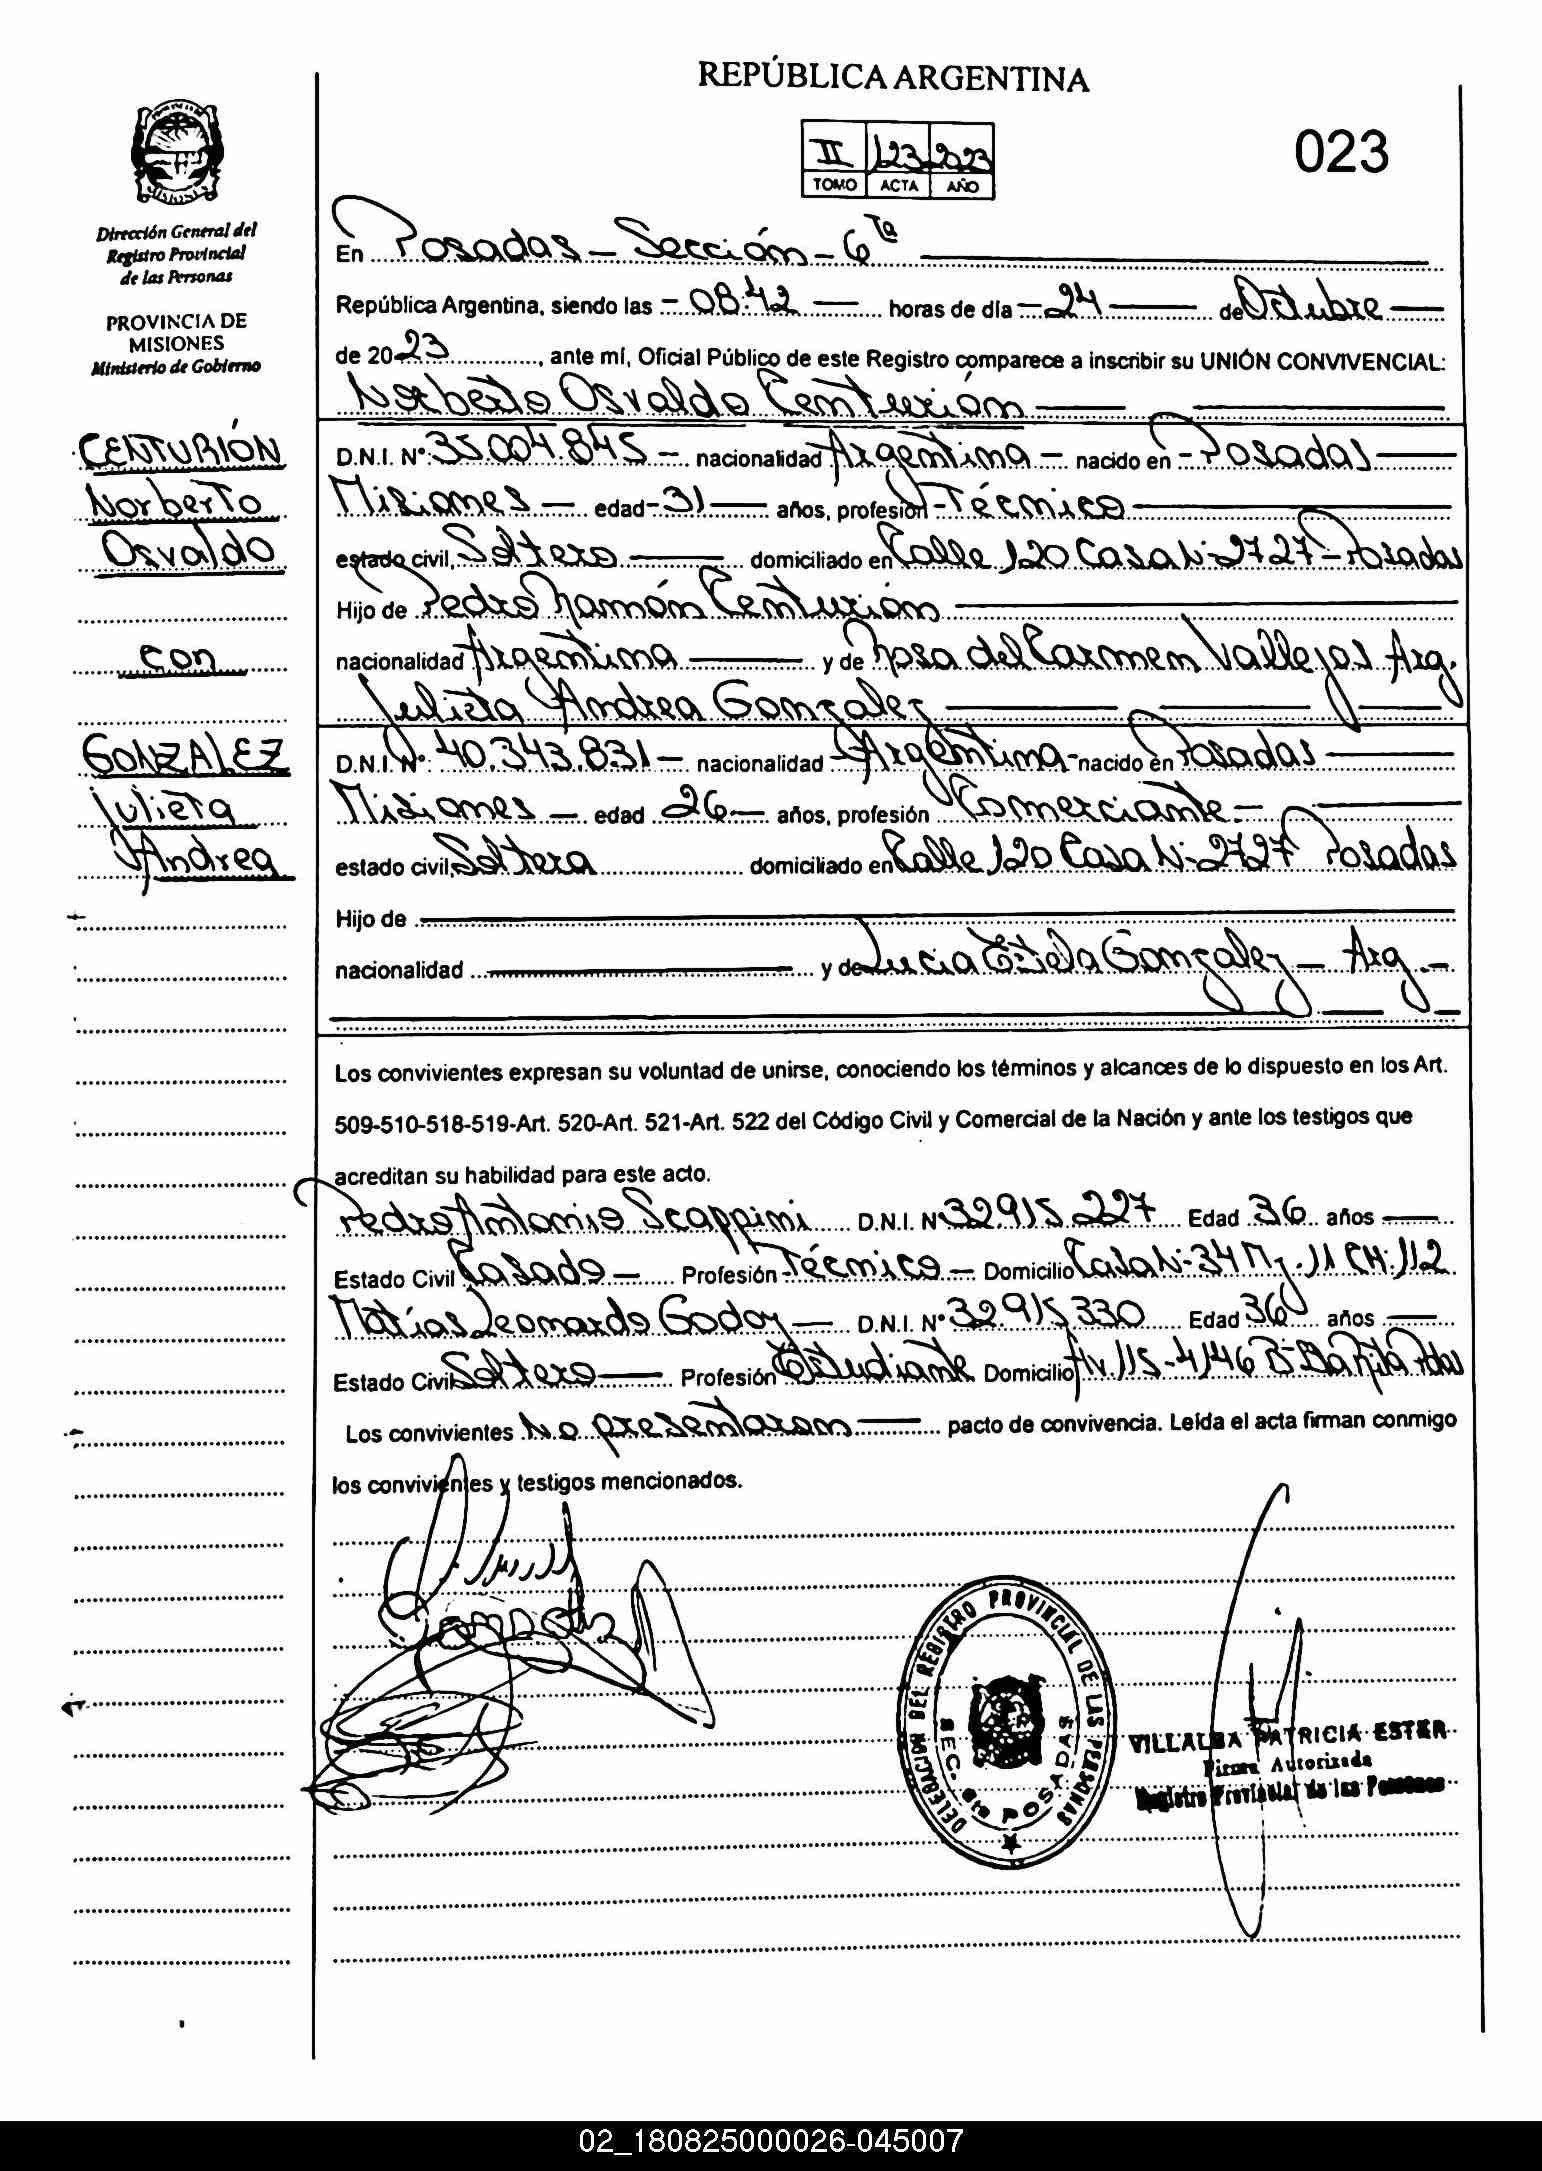 REPÚBLICA ARGENTINA
II 123 2023
TOMO ACTA AÑO
023
Dirección General del
Registro Provincial
de las Personas
PROVINCIA DE
MISIONES
Ministerio de Gobierno
CENTURIÓN
Norberto
Osvaldo
con
GONZALEZ
Julieta
Andrea
En Posadas - Sección - 6ta
República Argentina, siendo las - 08:42 horas de día - 24 de Octubre
de 2023, ante mí, Oficial Público de este Registro comparece a inscribir su UNIÓN CONVIVENCIAL:
Norberto Osvaldo Centurión
D.N.I. N°: 35.004.845 - nacionalidad Argentina - nacido en - Posadas
Misiones - edad - 31 años, profesión - Técnico
estado civil, Soltero domiciliado en Calle 120 Casa N- 2727 - Posadas
Hijo de Pedro Ramón Centurión
nacionalidad Argentina y de Rosa del Carmen Vallejos Arg.
Julieta Andrea Gonzalez
D.N.I. N°: 40.343.831 - nacionalidad Argentina - nacido en Posadas
Misiones - edad 26 - años, profesión Comerciante -
estado civil, Soltera domiciliado en Calle 120 Casa N- 2727 Posadas
Hijo de
nacionalidad y de Lucia Estela Gonzalez - Arg. -
Los convivientes expresan su voluntad de unirse, conociendo los términos y alcances de lo dispuesto en los Art.
509-510-518-519-Art. 520-Art. 521-Art. 522 del Código Civil y Comercial de la Nación y ante los testigos que
acreditan su habilidad para este acto.
Pedro Antonio Scappini D.N.I. N° 32.915.227 Edad 36 años
Estado Civil Casado - Profesión - Técnico - Domicilio Casa N- 34 Mz. 11 CH: 112
Matías Leonardo Godoy - D.N.I. N° 32.915.330 Edad 36 años
Estado Civil Soltero Profesión Estudiante Domicilio Av. 115 - 4146 B- Sta Rita Pdas
Los convivientes No presentaron pacto de convivencia. Leída el acta firman conmigo
los convivientes y testigos mencionados.
DELEGACION DEL REGISTRO PROVINCIAL DE LAS PERSONAS
SEC. 6ta POSADAS
VILLALBA PATRICIA ESTER
Firma Autorizada
Registro Provincial de las Personas
02_180825000026-045007